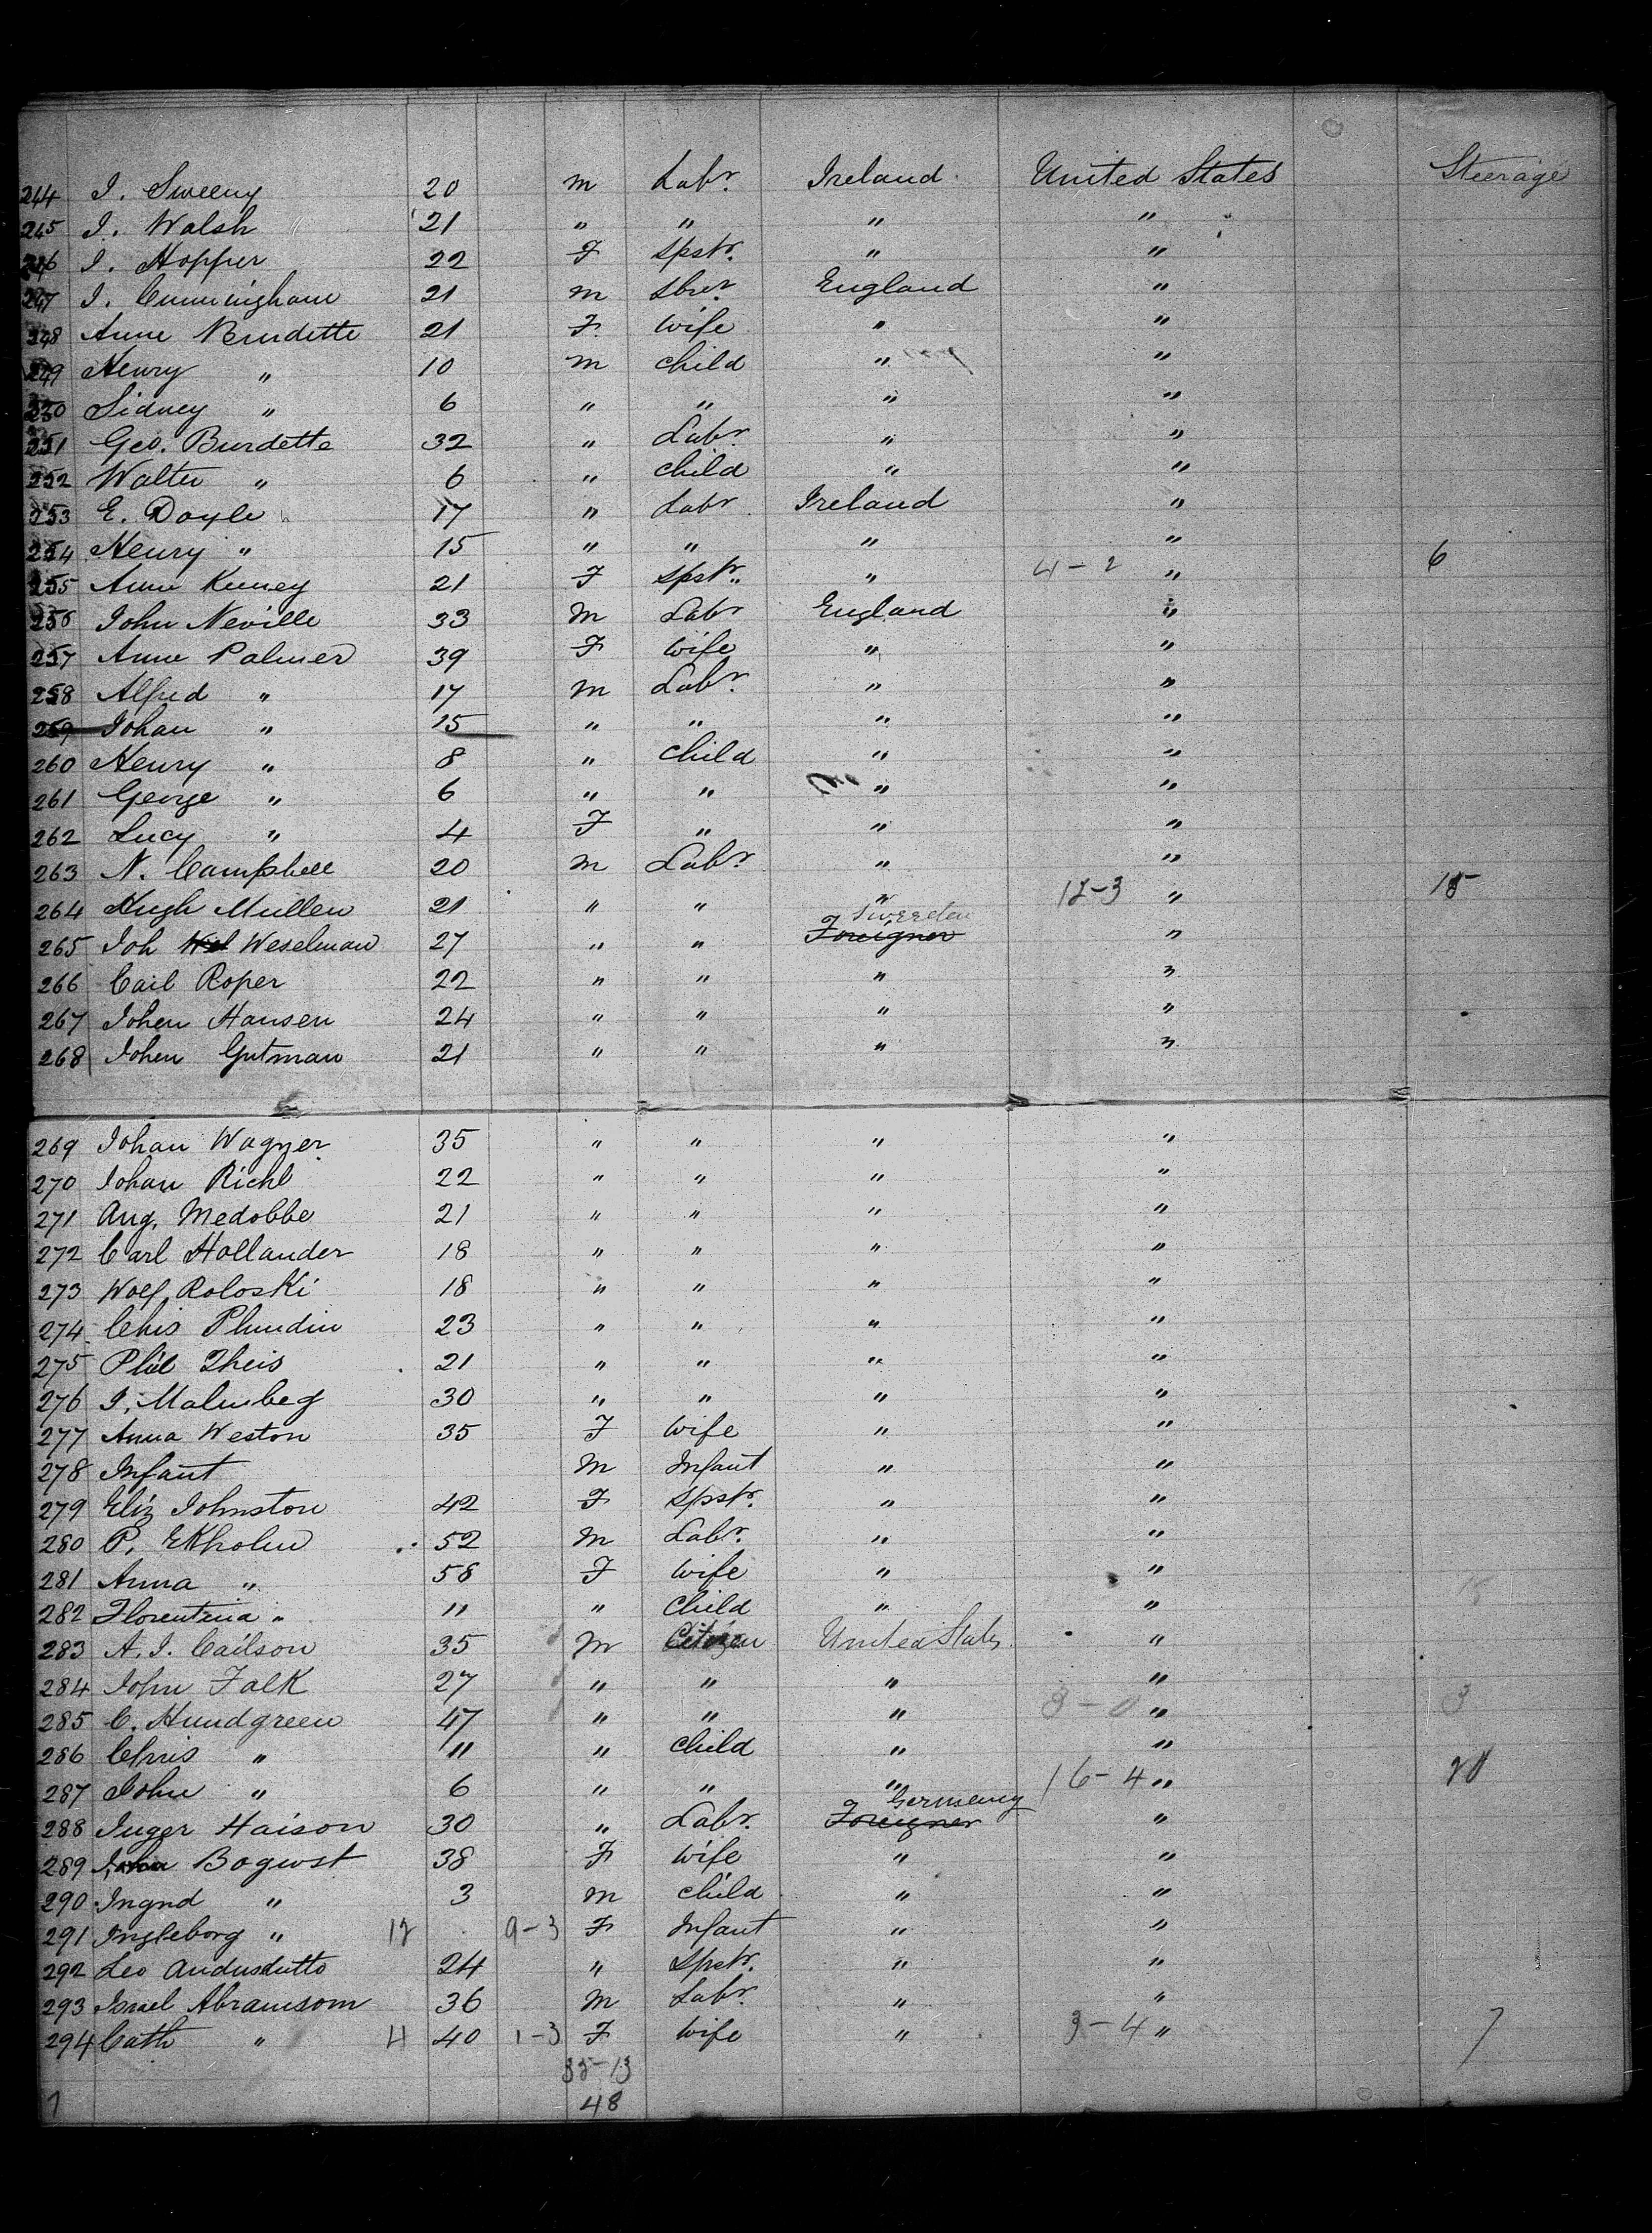 244 J. Sweeny 20 m Labr. Ireland United States Steerage
245 J. Walsh 21 " " " "
246 J. Hopper 22 F Spstr. " "
247 J. Cunningham 21 m Labr. England "
248 Anne Burdette 21 F wife " "
249 Henry " 10 m child " "
250 Sidney " 6 " " " "
251 Geo. Burdette 32 " Labr. " "
252 Walter " 6 " child " "
253 E. Doyle 17 " Labr Ireland "
254 Henry " 15 " " " "
255 Anne Kenney 21 F Spstr. " 4-2 " 6
256 John Neville 33 m Labr England "
257 Anne Palmer 39 F wife " "
258 Alfred " 17 m Labr. " "
259 Johan " 15 " " " "
260 Henry " 8 " child " "
261 George " 6 " " " "
262 Lucy " 4 F " " "
263 N. Campbell 20 m Labr. " "
264 Hugh Mullen 21 " " " 12-3 " 15
Sweeden
265 Joh Wel Weselman 27 " " Foreigner "
266 Cail Roper 22 " " " "
267 Johen Hansen 24 " " " "
268 Johen Gutman 21 " " " "
269 Johan Wagner 35 " " " "
270 Johan Richl 22 " " " "
271 Aug. Medobbe 21 " " " "
272 Carl Hollander 18 " " " "
273 Wolf Roloski 18 " " " "
274 Chis Plundin 23 " " " "
275 Phil Theis 21 " " " "
276 J. Malmbeg 30 " " " "
277 Anna Weston 35 F wife " "
278 Infant m Infant " "
279 Eliz Johnston 42 F Spstr. " "
280 P. Ekholm 52 m Labr. " "
281 Anna " 58 F wife " "
282 Florentina " 11 " child " "
283 A. J. Cailson 35 m Citizen United States "
284 John Falk 27 " " " "
285 C. Hundgreen 47 " " " 3-0 " 3
286 Chris " 11 " child " "
287 John " 6 " " " 16-4 " 20
Germany
288 Inger Haison 30 " Labr. Foreigner "
289 Bogwst 38 F wife " "
290 Ingnd " 3 m child " "
291 Ingleborg " 12 9-3 F Infant " "
292 Leo 24 " Spstr. " "
293 Israel Abramsom 36 m Labr. " "
294 Cath " 4 40 1-3 F wife " 3-4 " 7
35-13
48